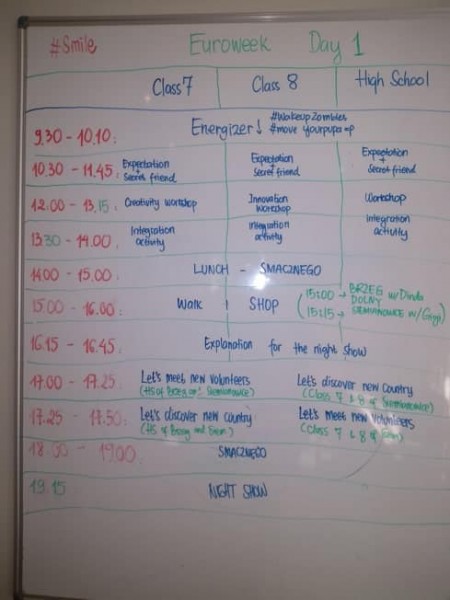 #Smile Euroweek Day 1
Class 7 Class 8 High School
9.30 - 10.10: Energizer! #WakeupZombies
#move yourpupa
10.30 - 11.45: Expectation + Secret friend Expectation + Secret friend Expectation + Secret friend
12.00 - 13.15: Creativity workshop Innovation Workshop Workshop
13.30 - 14.00: Integration activity Integration activity Integration activity
14.00 - 15.00: LUNCH - SMACZNEGO
15.00 - 16.00: Walk SHOP (15:00 → BRZEG DOLNY w/
15:15 → w/
16.15 - 16.45: Explanation for the night show
17.00 - 17.25: Let's meet new Volunteers Let's discover new Country
(HS of Brzeg (Class 7 & 8 of
17.25 - 17.50: Let's discover new Country Let's meet new Volunteers
(HS of Brzeg and (Class 7 & 8 of
18.00 - 19.00: SMACZNEGO
19.15 NIGHT SHOW